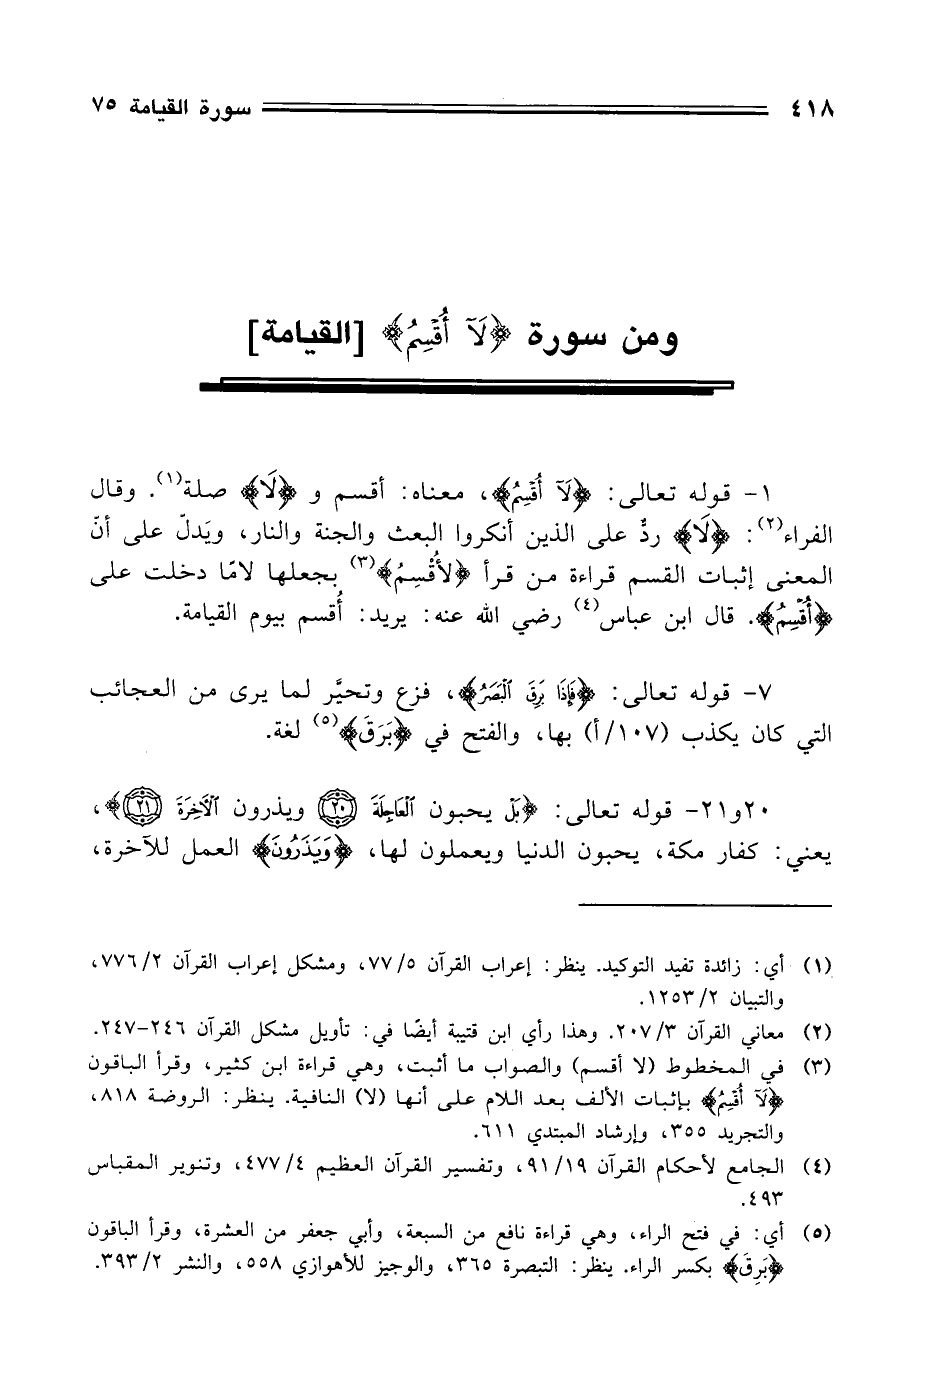 ٤١٨ سورة القيامة ٧٥
ومن سورة ﴿لَآ أُقْسِمُ﴾ [القيامة]
١- قوله تعالى: ﴿لَآ أُقْسِمُ﴾، معناه: أقسم و ﴿لَا﴾ صلة(١). وقال
الفراء(٢): ﴿لَا﴾ ردٌّ على الذين أنكروا البعث والجنة والنار، ويَدلّ على أنّ
المعنى إثبات القسم قراءة من قرأ ﴿لأُقْسِمُ﴾(٣) بجعلها لامًا دخلت على
﴿أُقْسِمُ﴾. قال ابن عباس(٤) رضي الله عنه: يريد: أُقسم بيوم القيامة.
٧- قوله تعالى: ﴿فَإِذَا بَرِقَ ٱلْبَصَرُ﴾، فزع وتحيَّر لما يرى من العجائب
التي كان يكذب (١٠٧/أ) بها، والفتح في ﴿بَرَقَ﴾(٥) لغة.
٢٠و٢١- قوله تعالى: ﴿بَلْ يحبون ٱلْعَاجِلَةَ ۝٢٠ ويذرون ٱلْآخِرَةَ ۝٢١﴾،
يعني: كفار مكة، يحبون الدنيا ويعملون لها، ﴿وَيَذَرُونَ﴾ العمل للآخرة،
(١) أي: زائدة تفيد التوكيد. ينظر: إعراب القرآن ٧٧/٥، ومشكل إعراب القرآن ٧٧٦/٢،
والتبيان ١٢٥٣/٢.
(٢) معاني القرآن ٢٠٧/٣. وهذا رأي ابن قتيبة أيضًا في: تأويل مشكل القرآن ٢٤٦-٢٤٧.
(٣) في المخطوط (لا أقسم) والصواب ما أثبت، وهي قراءة ابن كثير، وقرأ الباقون
﴿لَآ أُقْسِمُ﴾ بإثبات الألف بعد اللام على أنها (لا) النافية. ينظر: الروضة ٨١٨،
والتجريد ٣٥٥، وإرشاد المبتدي ٦١١.
(٤) الجامع لأحكام القرآن ٩١/١٩، وتفسير القرآن العظيم ٤٧٧/٤، وتنوير المقباس
٤٩٣.
(٥) أي: في فتح الراء، وهي قراءة نافع من السبعة، وأبي جعفر من العشرة، وقرأ الباقون
﴿بَرِقَ﴾ بكسر الراء. ينظر: التبصرة ٣٦٥، والوجيز للأهوازي ٥٥٨، والنشر ٣٩٣/٢.